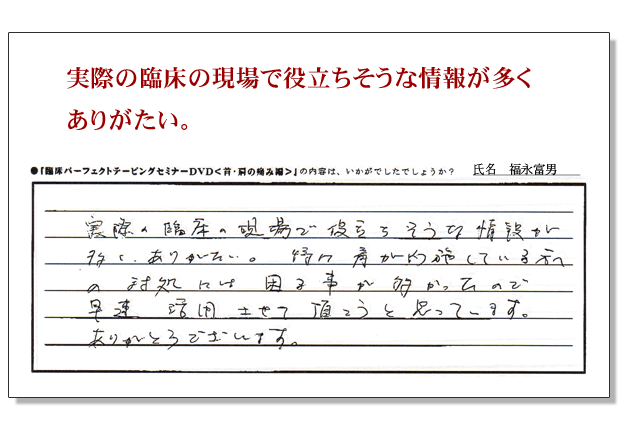 実際の臨床の現場で役立ちそうな情報が多く
ありがたい。
●『臨床パーフェクトテーピングセミナーDVD<首・肩の痛み編>』の内容は、いかがでしたでしょうか? 氏名 福永富男
実際の臨床の現場で役立ちそうな情報が
多く、ありがたい。特に肩が している
の対処には困る事が多かったので
早速活用させて頂こうと思っています。
ありがとうございます。